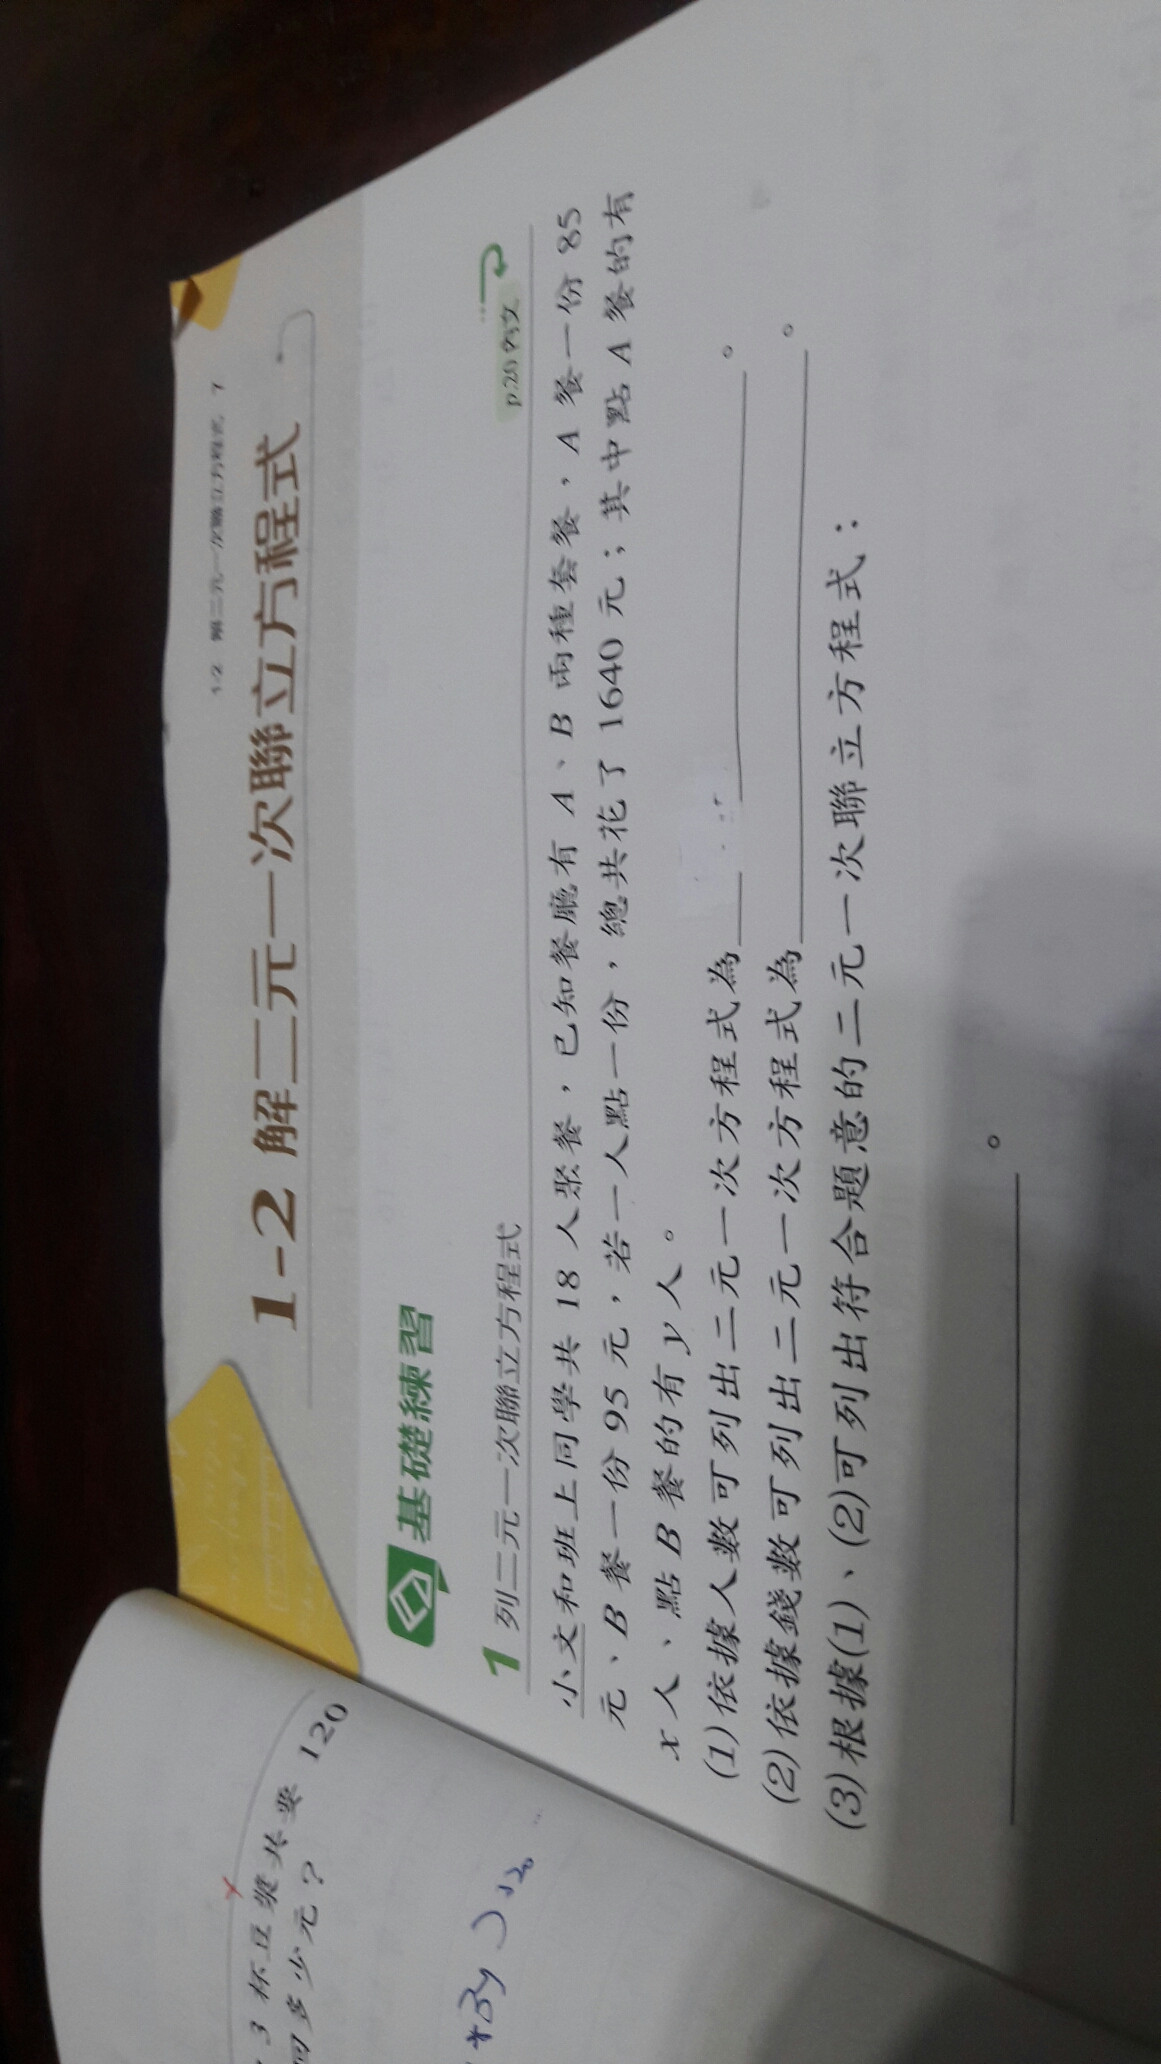 3 杯豆漿共要 120
多少元？
+3y
120
1-2 解二元一次聯立方程式 7
1-2 解二元一次聯立方程式
基礎練習
1 列二元一次聯立方程式 p.20 例文
小文和班上同學共 18 人聚餐，已知餐廳有 A、B 兩種套餐，A 餐一份 85
元、B 餐一份 95 元，若一人點一份，總共花了 1640 元；其中點 A 餐的有
x 人、點 B 餐的有 y 人。
(1)依據人數可列出二元一次方程式為 。
(2)依據錢數可列出二元一次方程式為 。
(3)根據(1)、(2)可列出符合題意的二元一次聯立方程式：
。